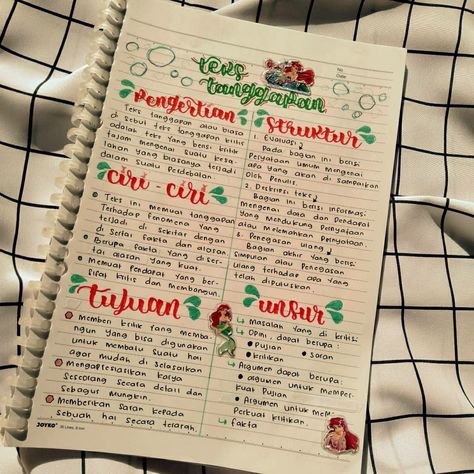 No.
Date
teks
tanggapan
Pengertian
Teks tanggapan atau biasa
di sebut teks tanggapan kritis
adalah teks yang berisi kritik
tajam mengenai suatu kesa-
lahan yang biasanya terjadi
dalam suatu perdebatan.
Ciri - Ciri
Teks ini memuat tanggapan
Terhadap fenomena yang
terjadi di sekitar dengan
di sertai fakta dan alasan
Berupa fakta yang di ser-
tai alasan yang kuat.
memuat Pendapat yang ber-
sifat kritis dan membangun.
Tujuan
Memberi kritik yang memba-
ngun yang bisa digunakan
untuk membatu suatu hal
agar mudah di selesaikan
Mengapresiasikan karya
Seseorang secara detail dan
Sebagus mungkin.
Memberikan Saran kepada
Sebuah hal secara terarah.
Struktur
1. Evaluasi
Pada bagian ini berisi
Peryataan umum mengenai
apa yang akan di sampaikan
oleh Penulis.
2. Deskripsi teks
Bagian ini berisi informasi
mengenai data dan Pendapat
yang mendukung Peryataan
atau melemahkan Peryataan.
3. Penegasan ulang
Bagian akhir yang berisi
Simpulan atau Penegasan
ulang terhadap apa yang
telah diputuskan.
unsur
Masalah yang di kritisi
Opini, dapat berupa :
Pujian
saran
kritikan
Argumen dapat berupa:
argumen untuk memper-
kuat Pujian
Argumen untuk mem
Perkuat kritikan.
fakta
JOYKO